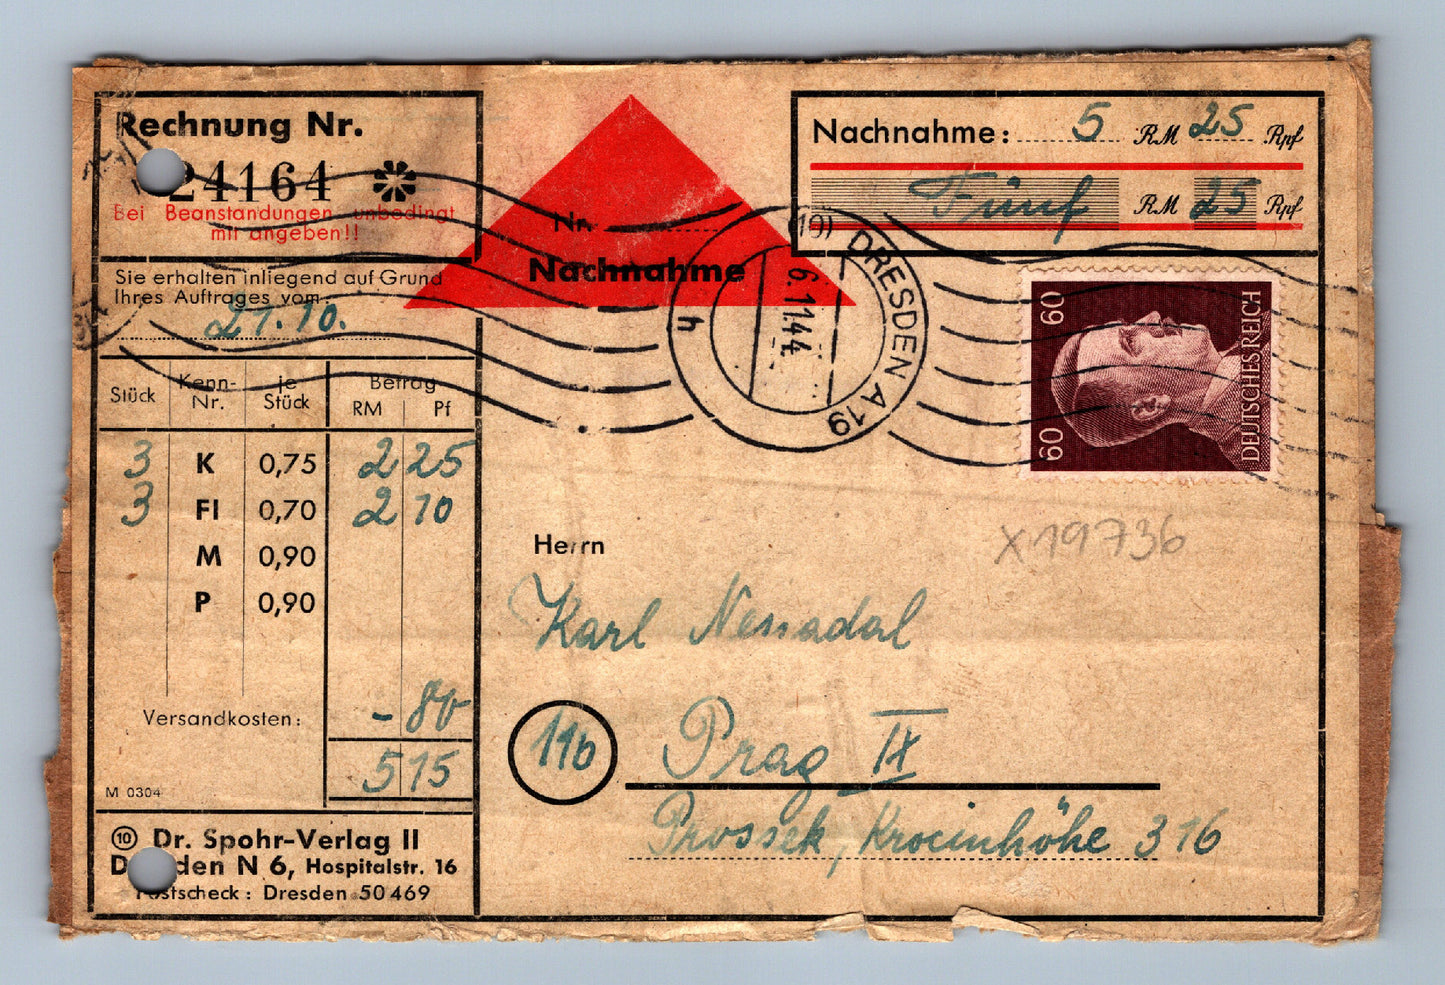 Rechnung Nr.
24164 *
Bei Beanstandungen unbedingt
mit angeben!!
Sie erhalten inliegend auf Grund
Ihres Auftrages vom:
21.10.
Stück Kenn-Nr. je Stück Betrag
RM Pf
3 K 0,75 2 25
3 Fl 0,70 2 10
M 0,90
P 0,90
Versandkosten: - 80
5 15
M 0304
(10) Dr. Spohr-Verlag II
Dresden N 6, Hospitalstr. 16
Postscheck: Dresden 50 469
Nr.
Nachnahme
Nachnahme: 5 RM 25 Rpf
Fünf RM 25 Rpf
(10) DRESDEN A 19
6.11.44
h
60 60
DEUTSCHES REICH
X19736
Herrn
Karl
11b
Prag IX
Prossek, Krocinhöhe 316